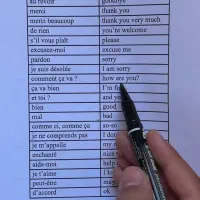 au revoir goodbye
merci thank you
merci beaucoup thank you very much
de rien you're welcome
s'il vous plaît please
excusez-moi excuse me
pardon sorry
je suis désolée I am sorry
comment ça va ? how are you?
ça va bien I'm
et toi ? and
bien good
mal bad
comme ci, comme ça so-
je ne comprends pas I do
je m'appelle my
enchanté nice
aide-moi help
je t'aime I lo
peut-être may
d'accord ok